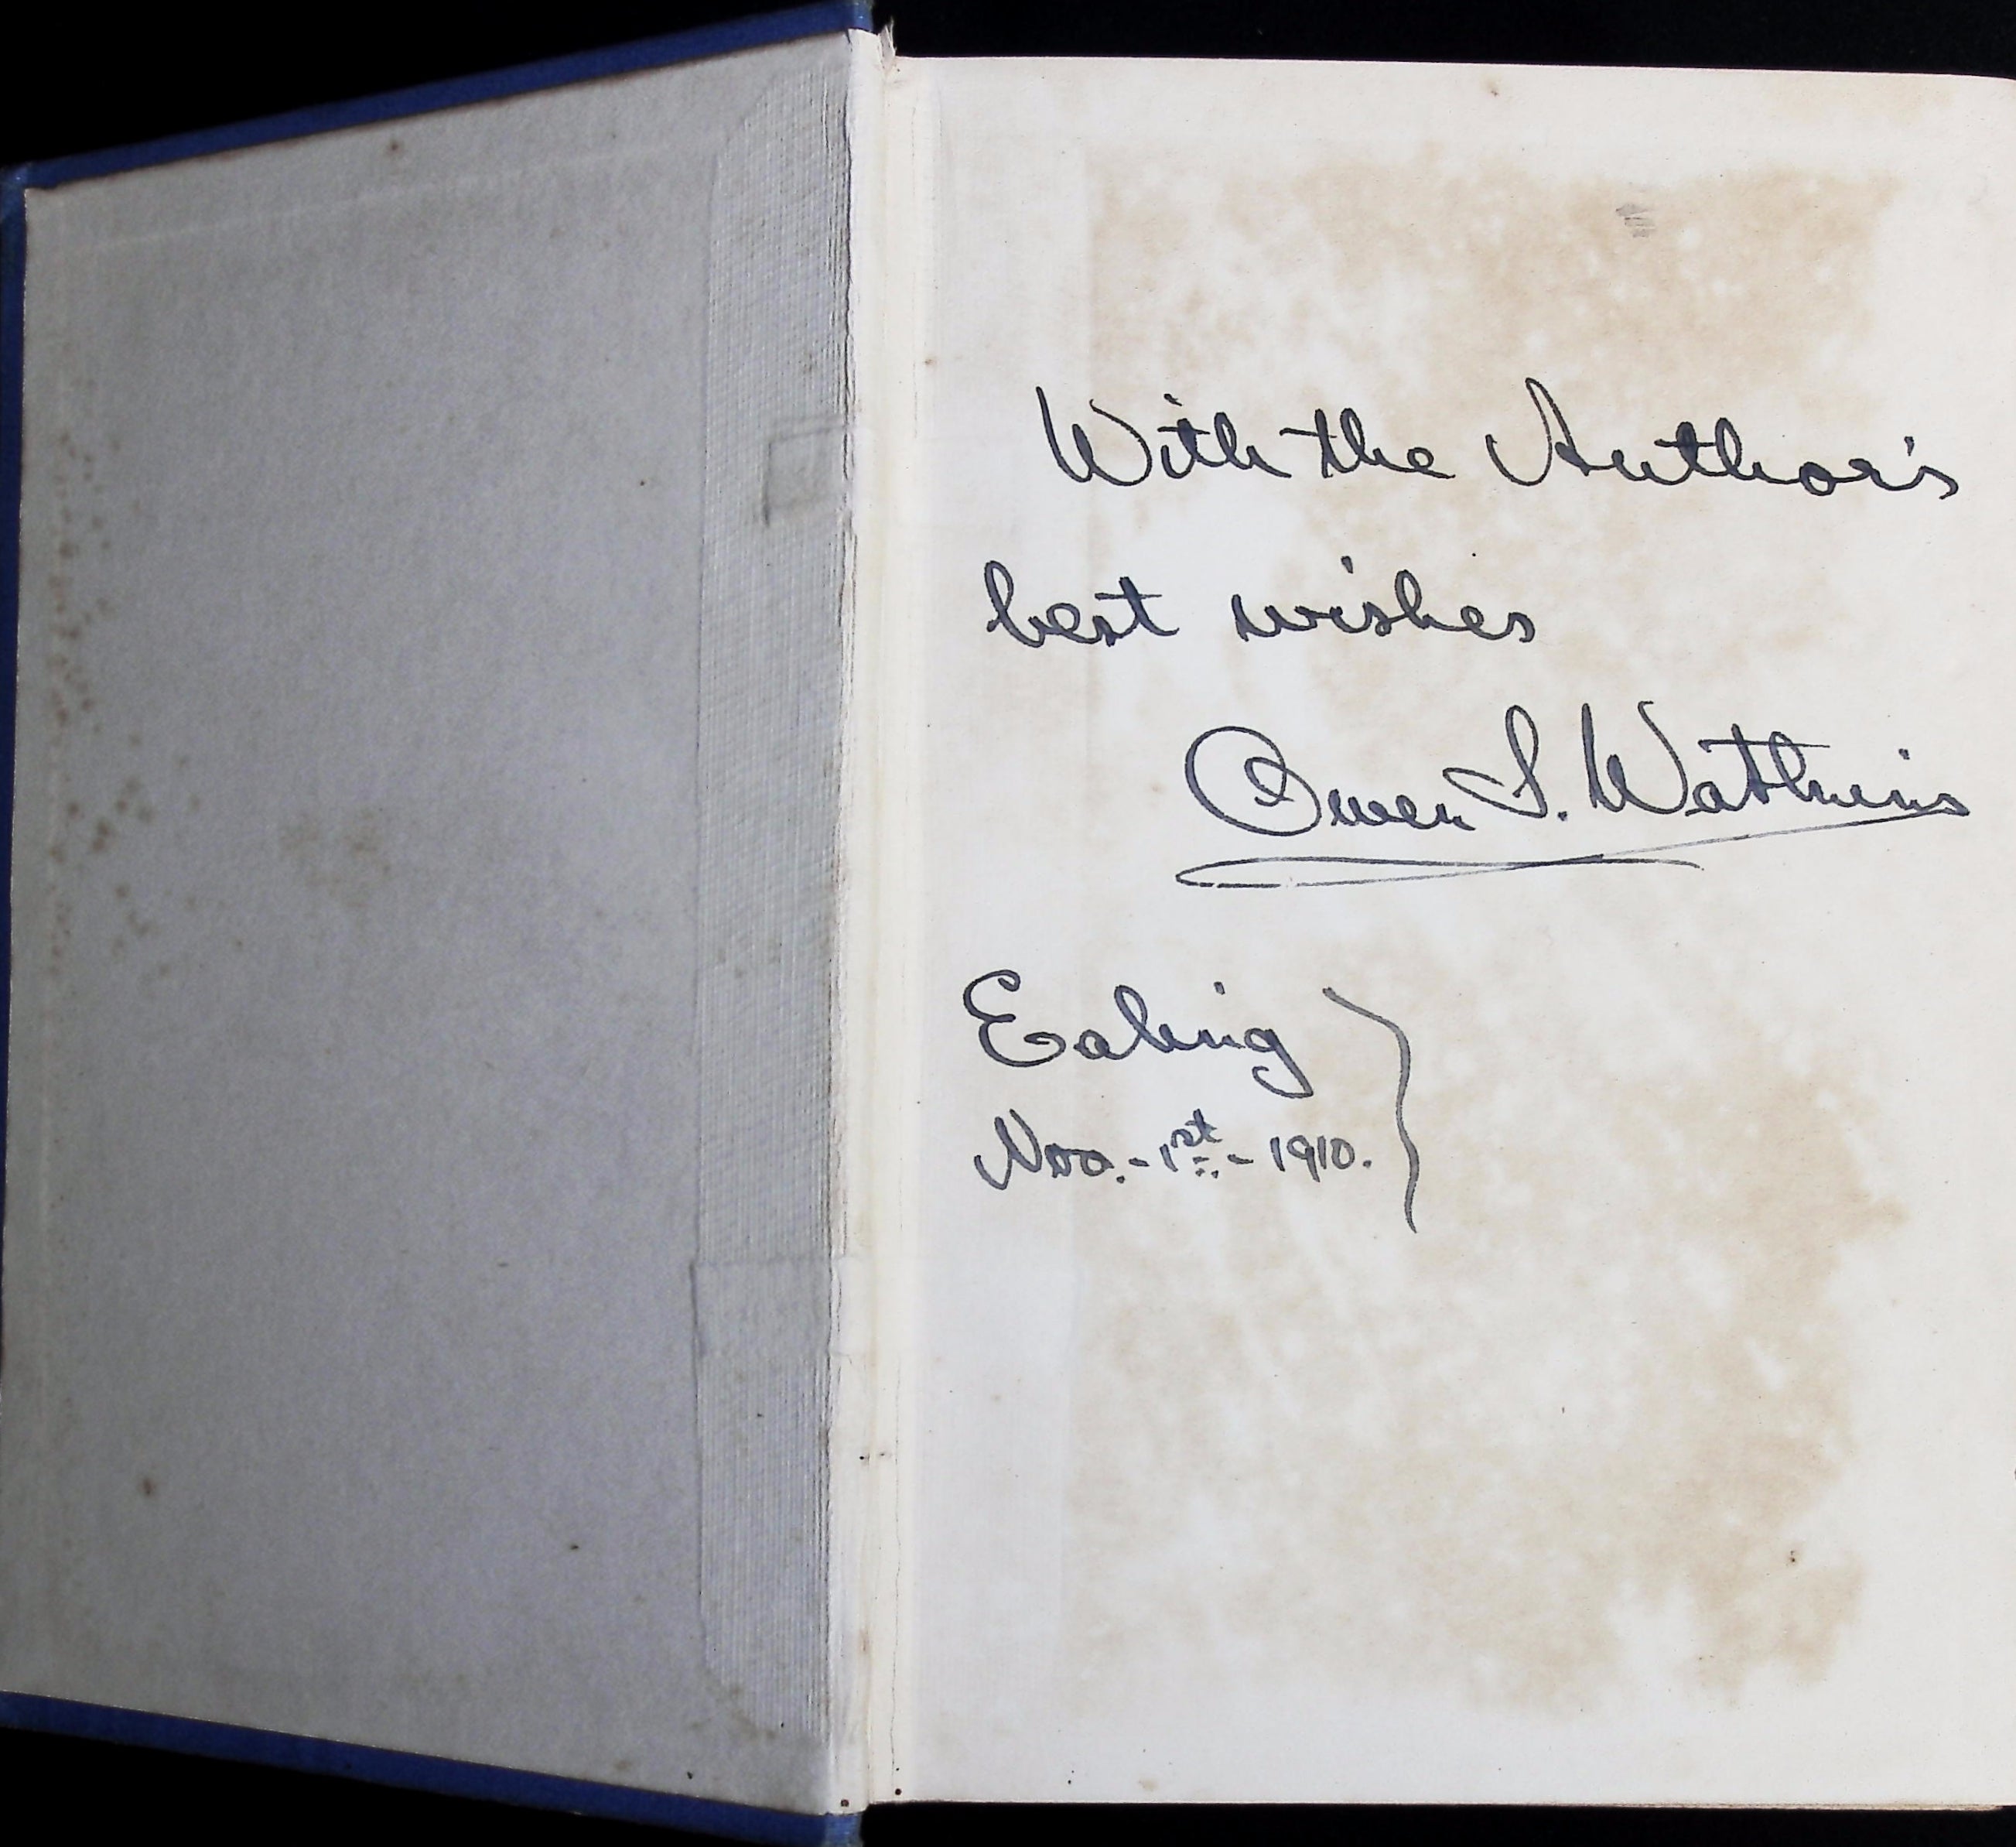 With the Author's
best wishes
Owen S. Watkins
Ealing
Nov. - 1st - 1910.